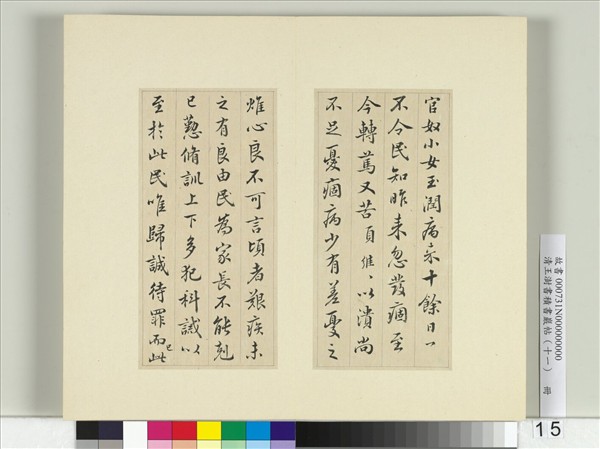 官奴小女玉潤病來十餘日了
不令民知昨来忽發痼至
今轉篤又苦頭癰〻以潰尚
不足憂痼病少有差憂之
燋心良不可言頃者艱疾未
之有良由民為家長不能剋
已懃脩訓上下多犯科誡以
至於此民唯歸誠待罪而已此
故書 000731N000000000
清王澍書積書巖帖(十一) 冊
15